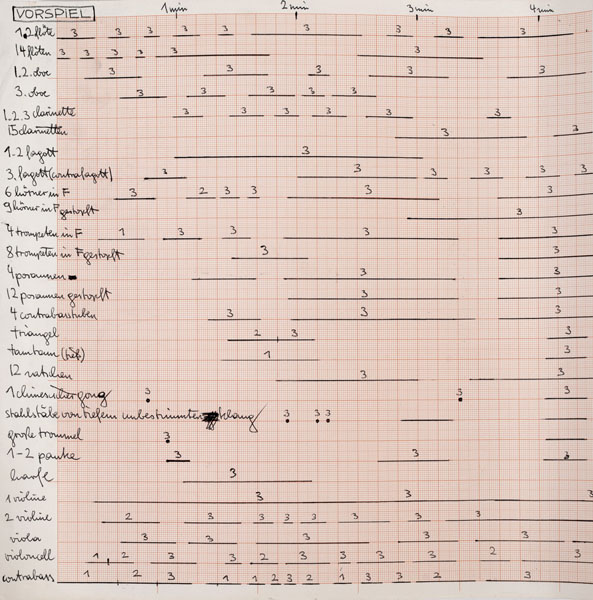 VORSPIEL 1min 2min 3min 4min
1.2 flöte 3 3 3 3 3 3 3 3 3
14 flöten 3 3 3 3 3 3
1.2. oboe 3 3 3 3 3
3. oboe 3 3 3 3 3
1.2.3 clarinette 3 3 3 3 3 3
15 clarinetten 3 3
1-2 fagott 3
3. fagott (contrafagott) 3 3 3 3 3 3
6 hörner in F 3 2 3 3 3 3
9 hörner in F gestopft 3
4 trompeten in F 1 3 3 3 3
8 trompeten in F gestopft 3 3
4 posaunen 3 3
12 posaunen gestopft 3 3
4 contrabasstuben 3 3 3
triangel 2 3 3
tamtam (tief) 1 3
12 ratschen 3 3
1 chinesischer gong 3 3 3
stahlstäbe von tiefem unbestimmten klang 3 3 3
große trommel 3
1-2 pauke 3 3 3
harfe 3
1 violine 3 3 3
2 violine 2 3 3 3 3 3 3 3
viola 3 3 3 3 3
violoncell 1 2 3 3 2 3 3 3 3 3 2 3
contrabass 1 2 3 1 1 2 3 2 1 3 3 2 3